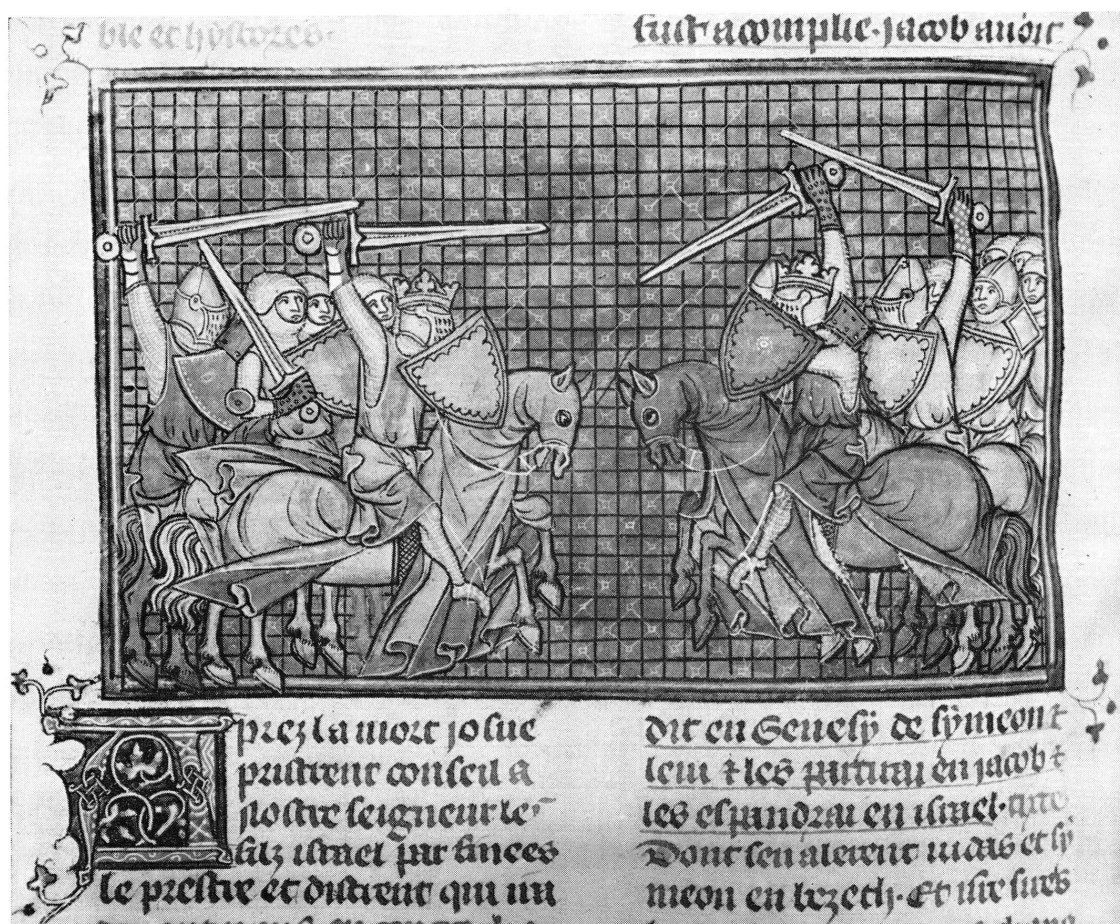 ble et hystores.
fust acomplie. jacob avoit
Aprez la mort josue
pristrent conseil a
nostre seigneur le
filz israel par finees
le prestre et distrent qui ira
dit en Genesy de symeon ⁊
levi ⁊ les partirai en jacob ⁊
les espandrai en israel.
Dont sen alerent iudas et sy
meon en bezech. Et